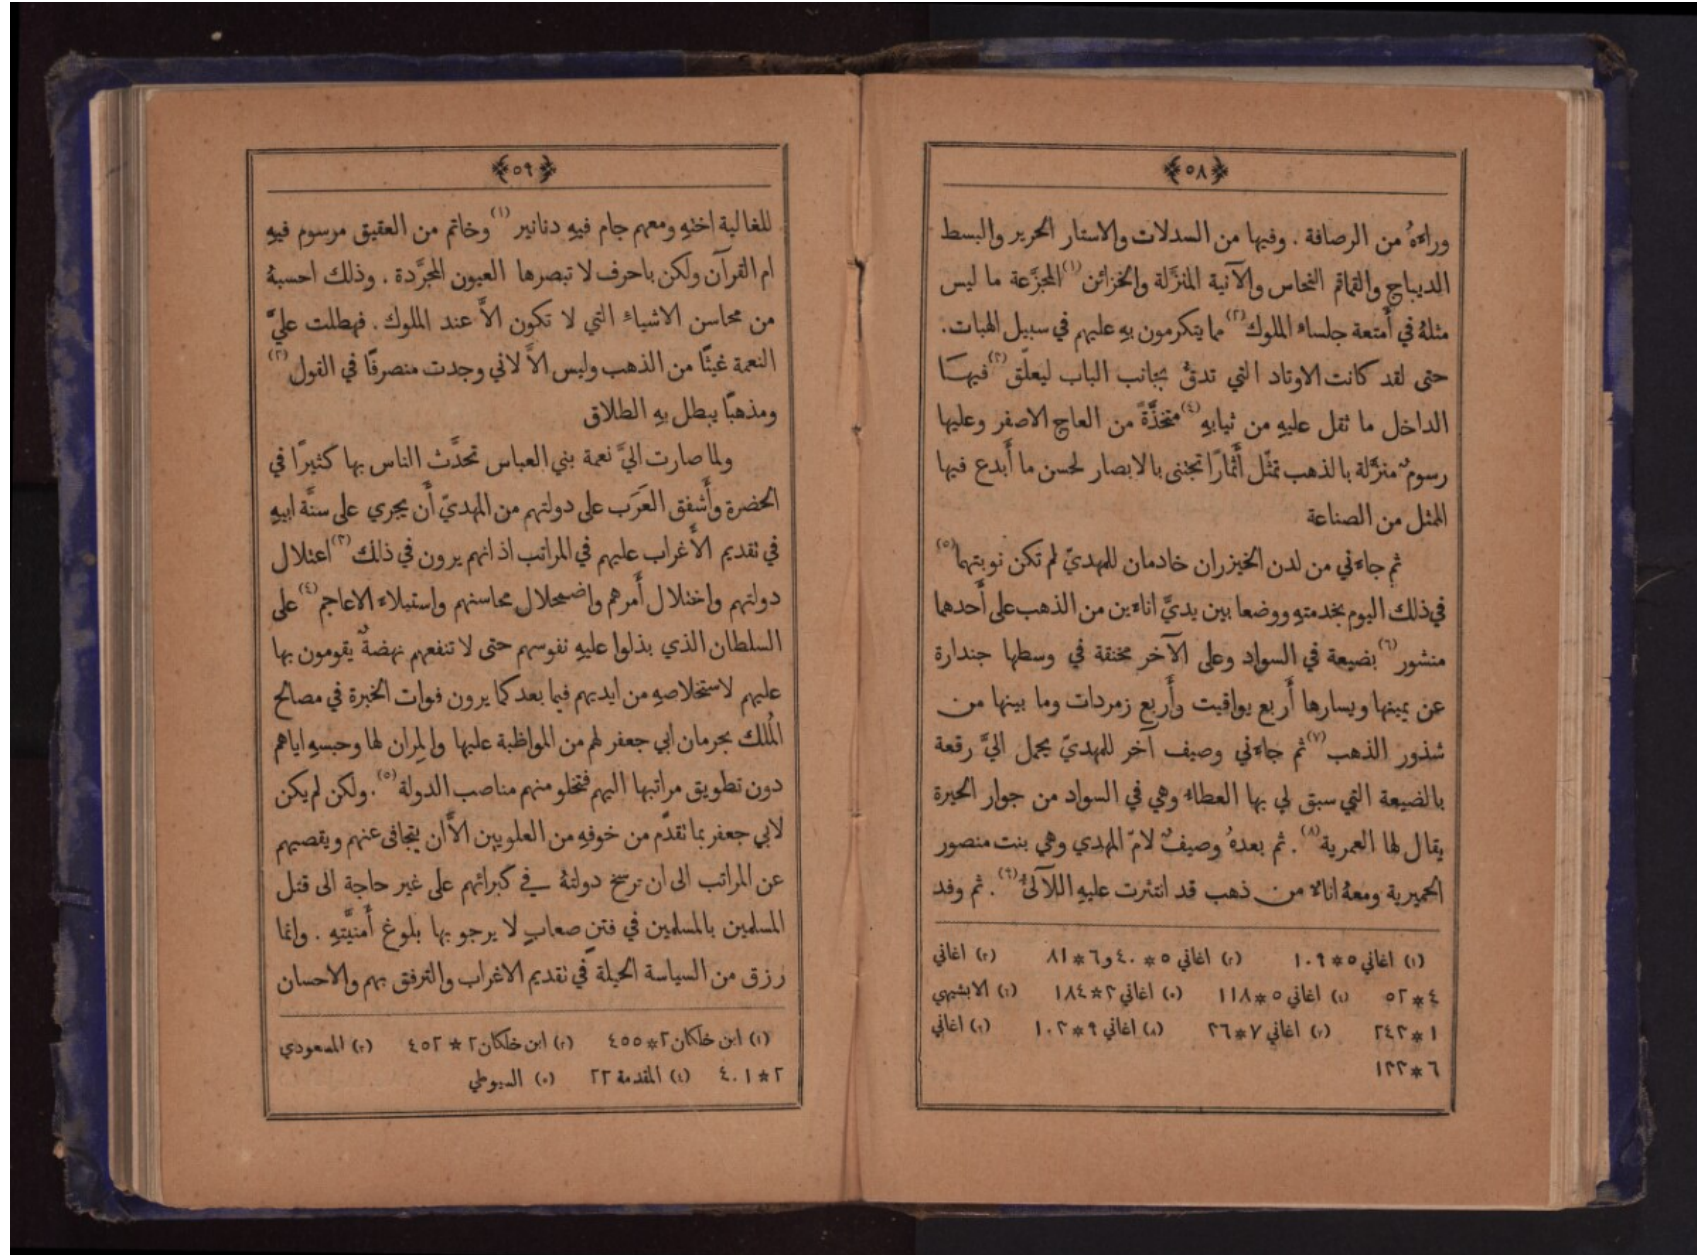 ﴿٥٨﴾
وراءهُ من الرصافة . وفيها من السدلات والاستار الحرير والبسط
الديباج والقماقم النحاس والآنية المنزَّلة والخزائن (١) المجزَّعة ما ليس
مثلهُ في أَمتعة جلساء الملوك (٢) مما يتكرمون بهِ عليهم في سبيل الهبات .
حتى لقد كانت الاوتاد التي تدقُّ بجانب الباب ليعلّق (٣) فيهـا
الداخل ما ثقل عليهِ من ثيابهِ (٤) متخذَّةً من العاج الاصفر وعليها
رسومٌ منزَّلة بالذهب تمثّل أَثمارًا تجتنى بالابصار لحسن ما أَبدع فيها
الممثل من الصناعة
ثم جاءني من لدن الخيزران خادمان للمهديّ لم تكن نوبتهما (٥)
في ذلك اليوم بخدمتهِ ووضعا بين يديَّ اناءين من الذهب على أَحدهما
منشور (٦) بضيعة في السواد وعلى الآخر مخنقة في وسطها جندارة
عن يمينها ويسارها أَربع يواقيت وأَربع زمردات وما بينها من
شذور الذهب (٧) ثم جاءني وصيف آخر للمهديّ يحمل اليَّ رقعة
بالضيعة التي سبق لي بها العطاء وهي في السواد من جوار الحيرة
يقال لها العمرية (٨) . ثم بعدهُ وصيفٌ لامّ المهدي وهي بنت منصور
الحميرية ومعهُ اناء من ذهب قد انتثرت عليهِ اللآلئُ (٩) . ثم وفد
(١) اغاني ٥*١٠٩ (٢) اغاني ٥*٤٠ و٦*٨١ (٣) اغاني
٤*٥٢ (٤) اغاني ٥*١١٨ (٥) اغاني ٢*١٨٤ (٦) الابشيهي
١*٢٤٢ (٧) اغاني ٧*٢٦ (٨) اغاني ٩*١٠٢ (٩) اغاني
٦*١٢٢
﴿٥٩﴾
للغالية اختهِ ومعهم جام فيهِ دنانير (١) وخاتم من العقيق مرسوم فيهِ
ام القرآن ولكن باحرف لا تبصرها العيون المجرَّدة . وذلك احسبهُ
من محاسن الاشياءِ التي لا تكون الاَّ عند الملوك . فهطلت عليَّ
النعمة غيثًا من الذهب وليس الاَّ لاني وجدت منصرفًا في القول (٢)
ومذهبًا يبطل بهِ الطلاق
ولما صارت اليَّ نعمة بني العباس تحدَّث الناس بها كثيرًا في
الحضرة وأَشفق العَرَب على دولتهم من المهديّ أَن يجري على سنَّة ابيهِ
في تقديم الأَغراب عليهم في المراتب اذ انهم يرون في ذلك (٣) اعتلال
دولتهم واختلال أَمرهم واضمحلال محاسنهم واستيلاء الاعاجم (٤) على
السلطان الذي بذلوا عليهِ نفوسهم حتى لا تنفعهم نهضةٌ يقومون بها
عليهم لاستخلاصهِ من ايديهم فيما بعد كما يرون فوات الخبرة في مصالح
المُلك بحرمان ابي جعفر لهم من المواظبة عليها والمِران لها وحبسهِ اياهم
دون تطويق مراتبها اليهم فتخلو منهم مناصب الدولة (٥) . ولكن لم يكن
لابي جعفر بما تقدَّم من خوفهِ من العلويين الاَّ ان يتجافى عنهم ويقصيهم
عن المراتب الى ان ترسخ دولتهُ في كبرائهم على غير حاجة الى قتل
المسلمين بالمسلمين في فتنٍ صعابٍ لا يرجو بها بلوغ أَمنيَّتهِ . وانما
رزق من السياسة الحيلة في تقديم الاغراب والترفق بهم والاحسان
(١) ابن خلكان ٢*٤٥٥ (٢) ابن خلكان ٢*٤٥٢ (٣) المسعودي
٢*٤٠١ (٤) المقدمة ٢٢ (٥) السيوطي